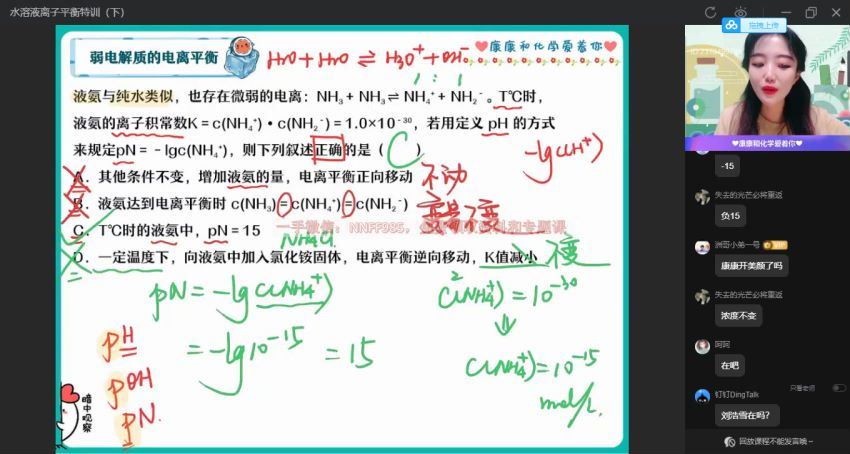 水溶液离子平衡特训（下）
拖拽上传
弱电解质的电离平衡
H₂O + H₂O ⇌ H₃O⁺ + OH⁻
1 : 1
康康和化学爱着你
液氨与纯水类似，也存在微弱的电离：NH₃ + NH₃ ⇌ NH₄⁺ + NH₂⁻。T℃时，
液氨的离子积常数K = c(NH₄⁺)·c(NH₂⁻) = 1.0×10⁻³⁰，若用定义 pH 的方式
来规定pN = －lgc(NH₄⁺)，则下列叙述正确的是（ C ）
-lgc(H⁺)
A．其他条件不变，增加液氨的量，电离平衡正向移动 不动
B．液氨达到电离平衡时 c(NH₃) = c(NH₄⁺) = c(NH₂⁻)
C．T℃时的液氨中，pN = 15
一手微信：NNFF985，
NH₄Cl
D．一定温度下，向液氨中加入氯化铵固体，电离平衡逆向移动，K值减小 不变
pN = -lg c(NH₄⁺)
= -lg10⁻¹⁵ = 15
c²(NH₄⁺) = 10⁻³⁰
⇓
c(NH₄⁺) = 10⁻¹⁵
mol/L
pH
pOH
pN.
暗中观察
康康和化学爱着你
-15
失去的光芒必将重返
负15
洲哥小弟一号
康康开美颜了吗
失去的光芒必将重返
浓度不变
阿阿
在吧
只看老师
钉钉DingTalk
刘浩雪在吗？
回放课程不能发言噢~